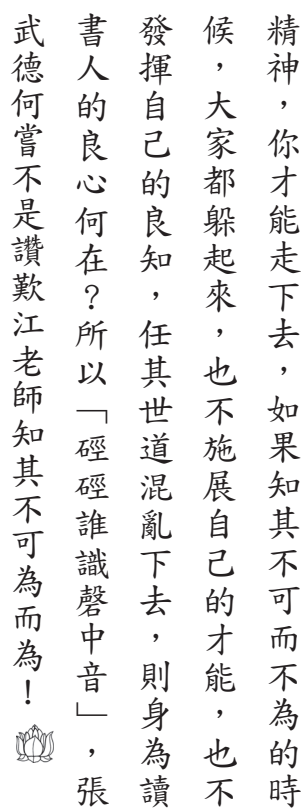 精神，你才能走下去，如果知其不可而不為的時
候，大家都躲起來，也不施展自己的才能，也不
發揮自己的良知，任其世道混亂下去，則身為讀
書人的良心何在？所以「硜硜誰識磬中音」，張
武德何嘗不是讚歎江老師知其不可為而為！